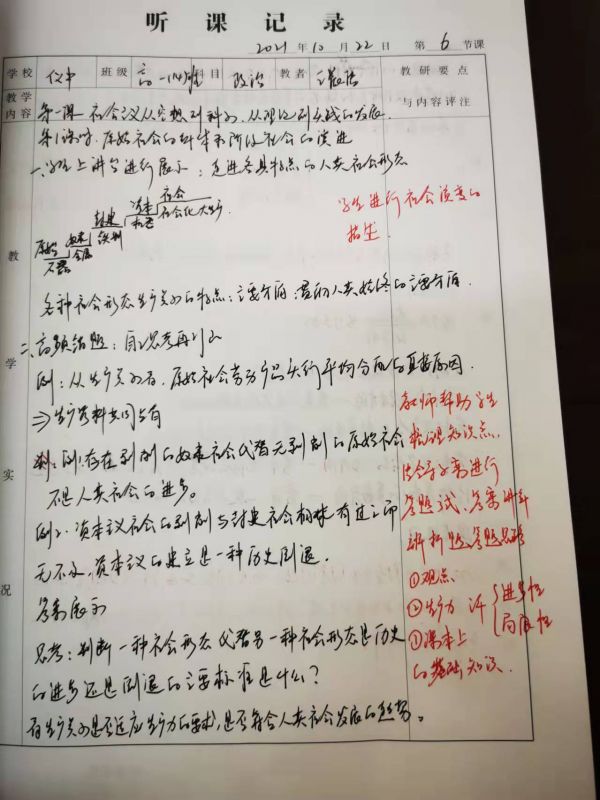 听课记录
2021年10月22日 第6节课
学校 仪中 班级 高一(4)班 科目 政治 教者 教研要点
与内容评注
教学内容 第一课 社会主义从空想到科学、从理论到实践的发展
第1课时:原始社会的解体和阶级社会的演进
一、学生上讲台进行展示:走进各具特点的人类社会形态
社会
社会化大生产
资本
机器
封建
铁制
奴隶
金属
原始
石器
学生进行社会演变的
描述
各种社会形态生产关系的特点;主要矛盾;贯彻人类始终的主要矛盾.
二、高频错题:自己思考再订正
例:从生产关系看,原始社会高劳产品实行平均分配的直接原因.
⇒生产资料共同占有
例1:存在剥削的奴隶社会代替无剥削的原始社会
不是人类社会的进步。
例2、资本主义社会的剥削与封建社会相比有过之而
无不及,资本主义的建立是一种历史倒退.
答案展示
思考:判断一种社会形态代替另一种社会形态是历史
的进步还是倒退的主要标准是什么?
看生产关系是否适应生产力的要求,是否符合人类社会发展的趋势。
教师帮助学生
梳理知识点,
答题试、答案讲解
辨析题答题思路
①观点
②生产力 评 {进步性 局限性
③课本上
的基础知识.
教学实况